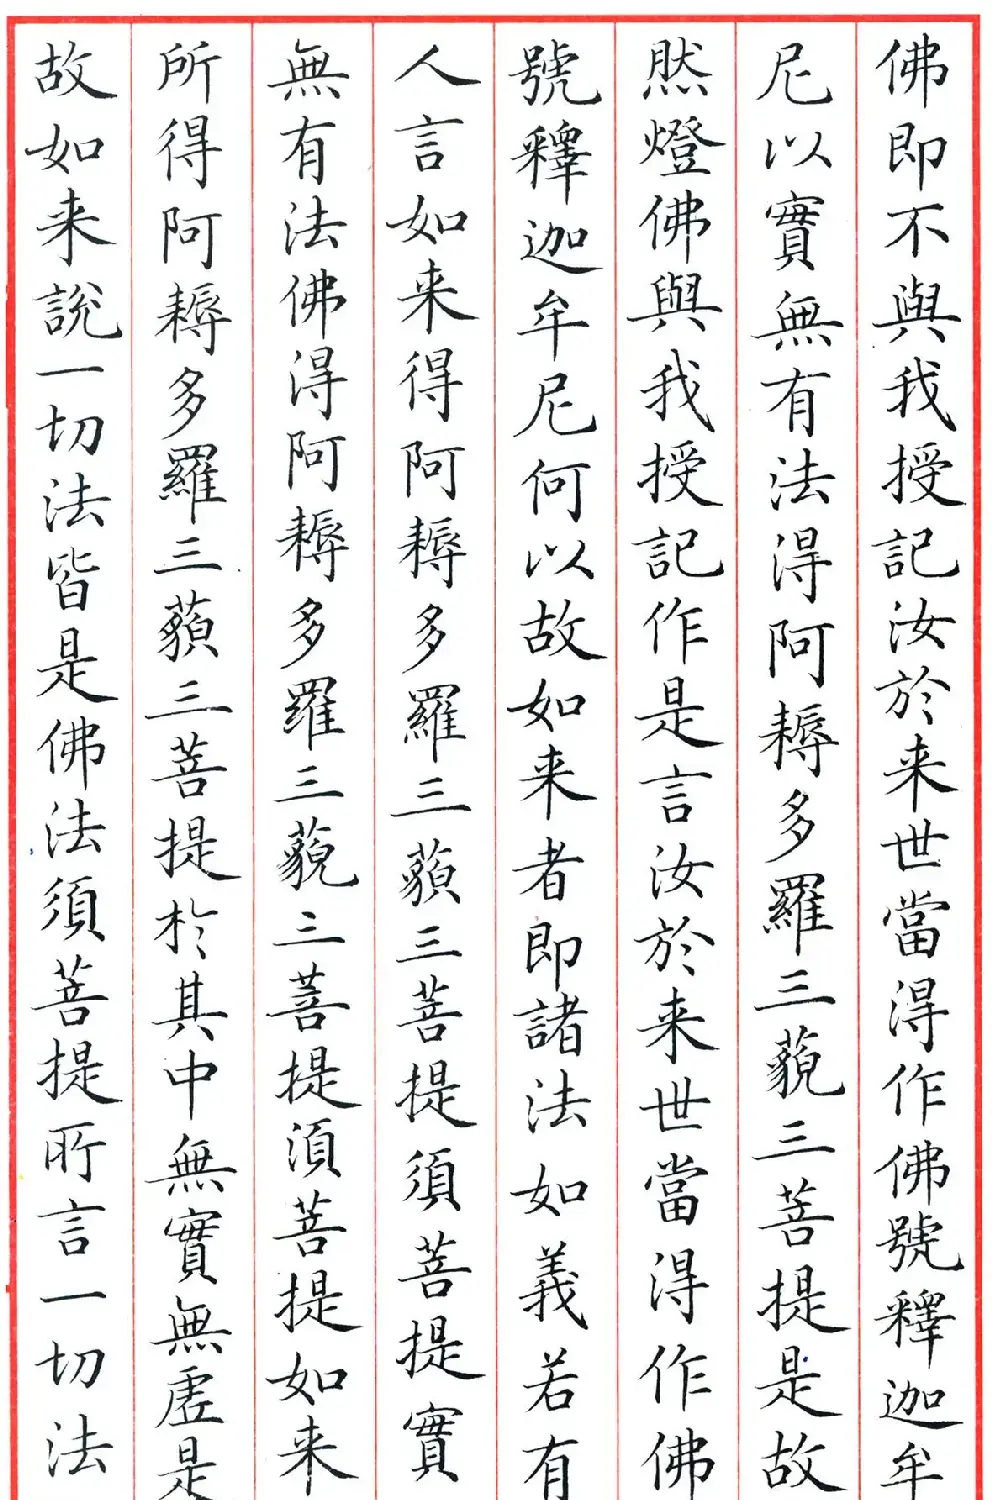 佛即不與我授記汝於来世當得作佛號釋迦牟
尼以實無有法得阿耨多羅三藐三菩提是故
然燈佛與我授記作是言汝於来世當得作佛
號釋迦牟尼何以故如来者即諸法如義若有
人言如来得阿耨多羅三藐三菩提須菩提實
無有法佛得阿耨多羅三藐三菩提須菩提如来
所得阿耨多羅三藐三菩提於其中無實無虛是
故如来說一切法皆是佛法須菩提所言一切法